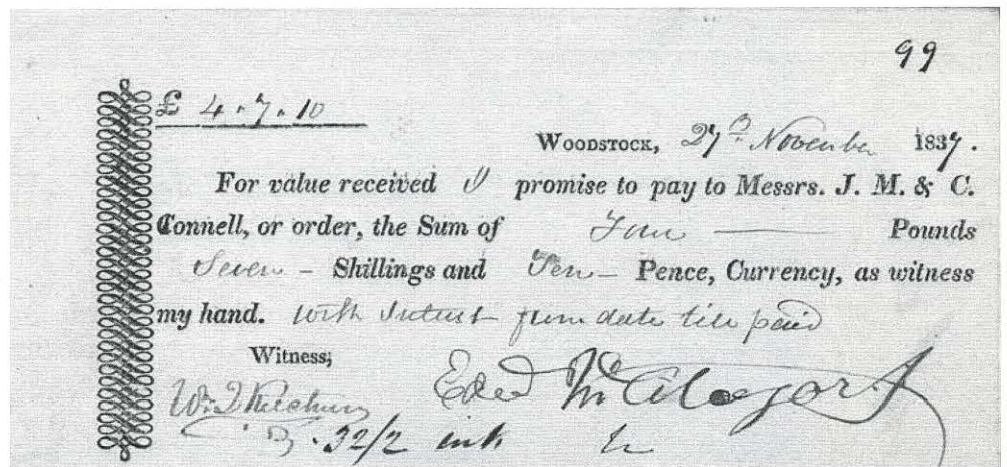 99
£ 4.7.10
WOODSTOCK, 27th November 1837.
For value received I promise to pay to Messrs. J. M. & C.
Connell, or order, the Sum of Four — Pounds
Seven – Shillings and Ten – Pence, Currency, as witness
my hand. with Interest from date till paid
Witness;
Edwd
32/2